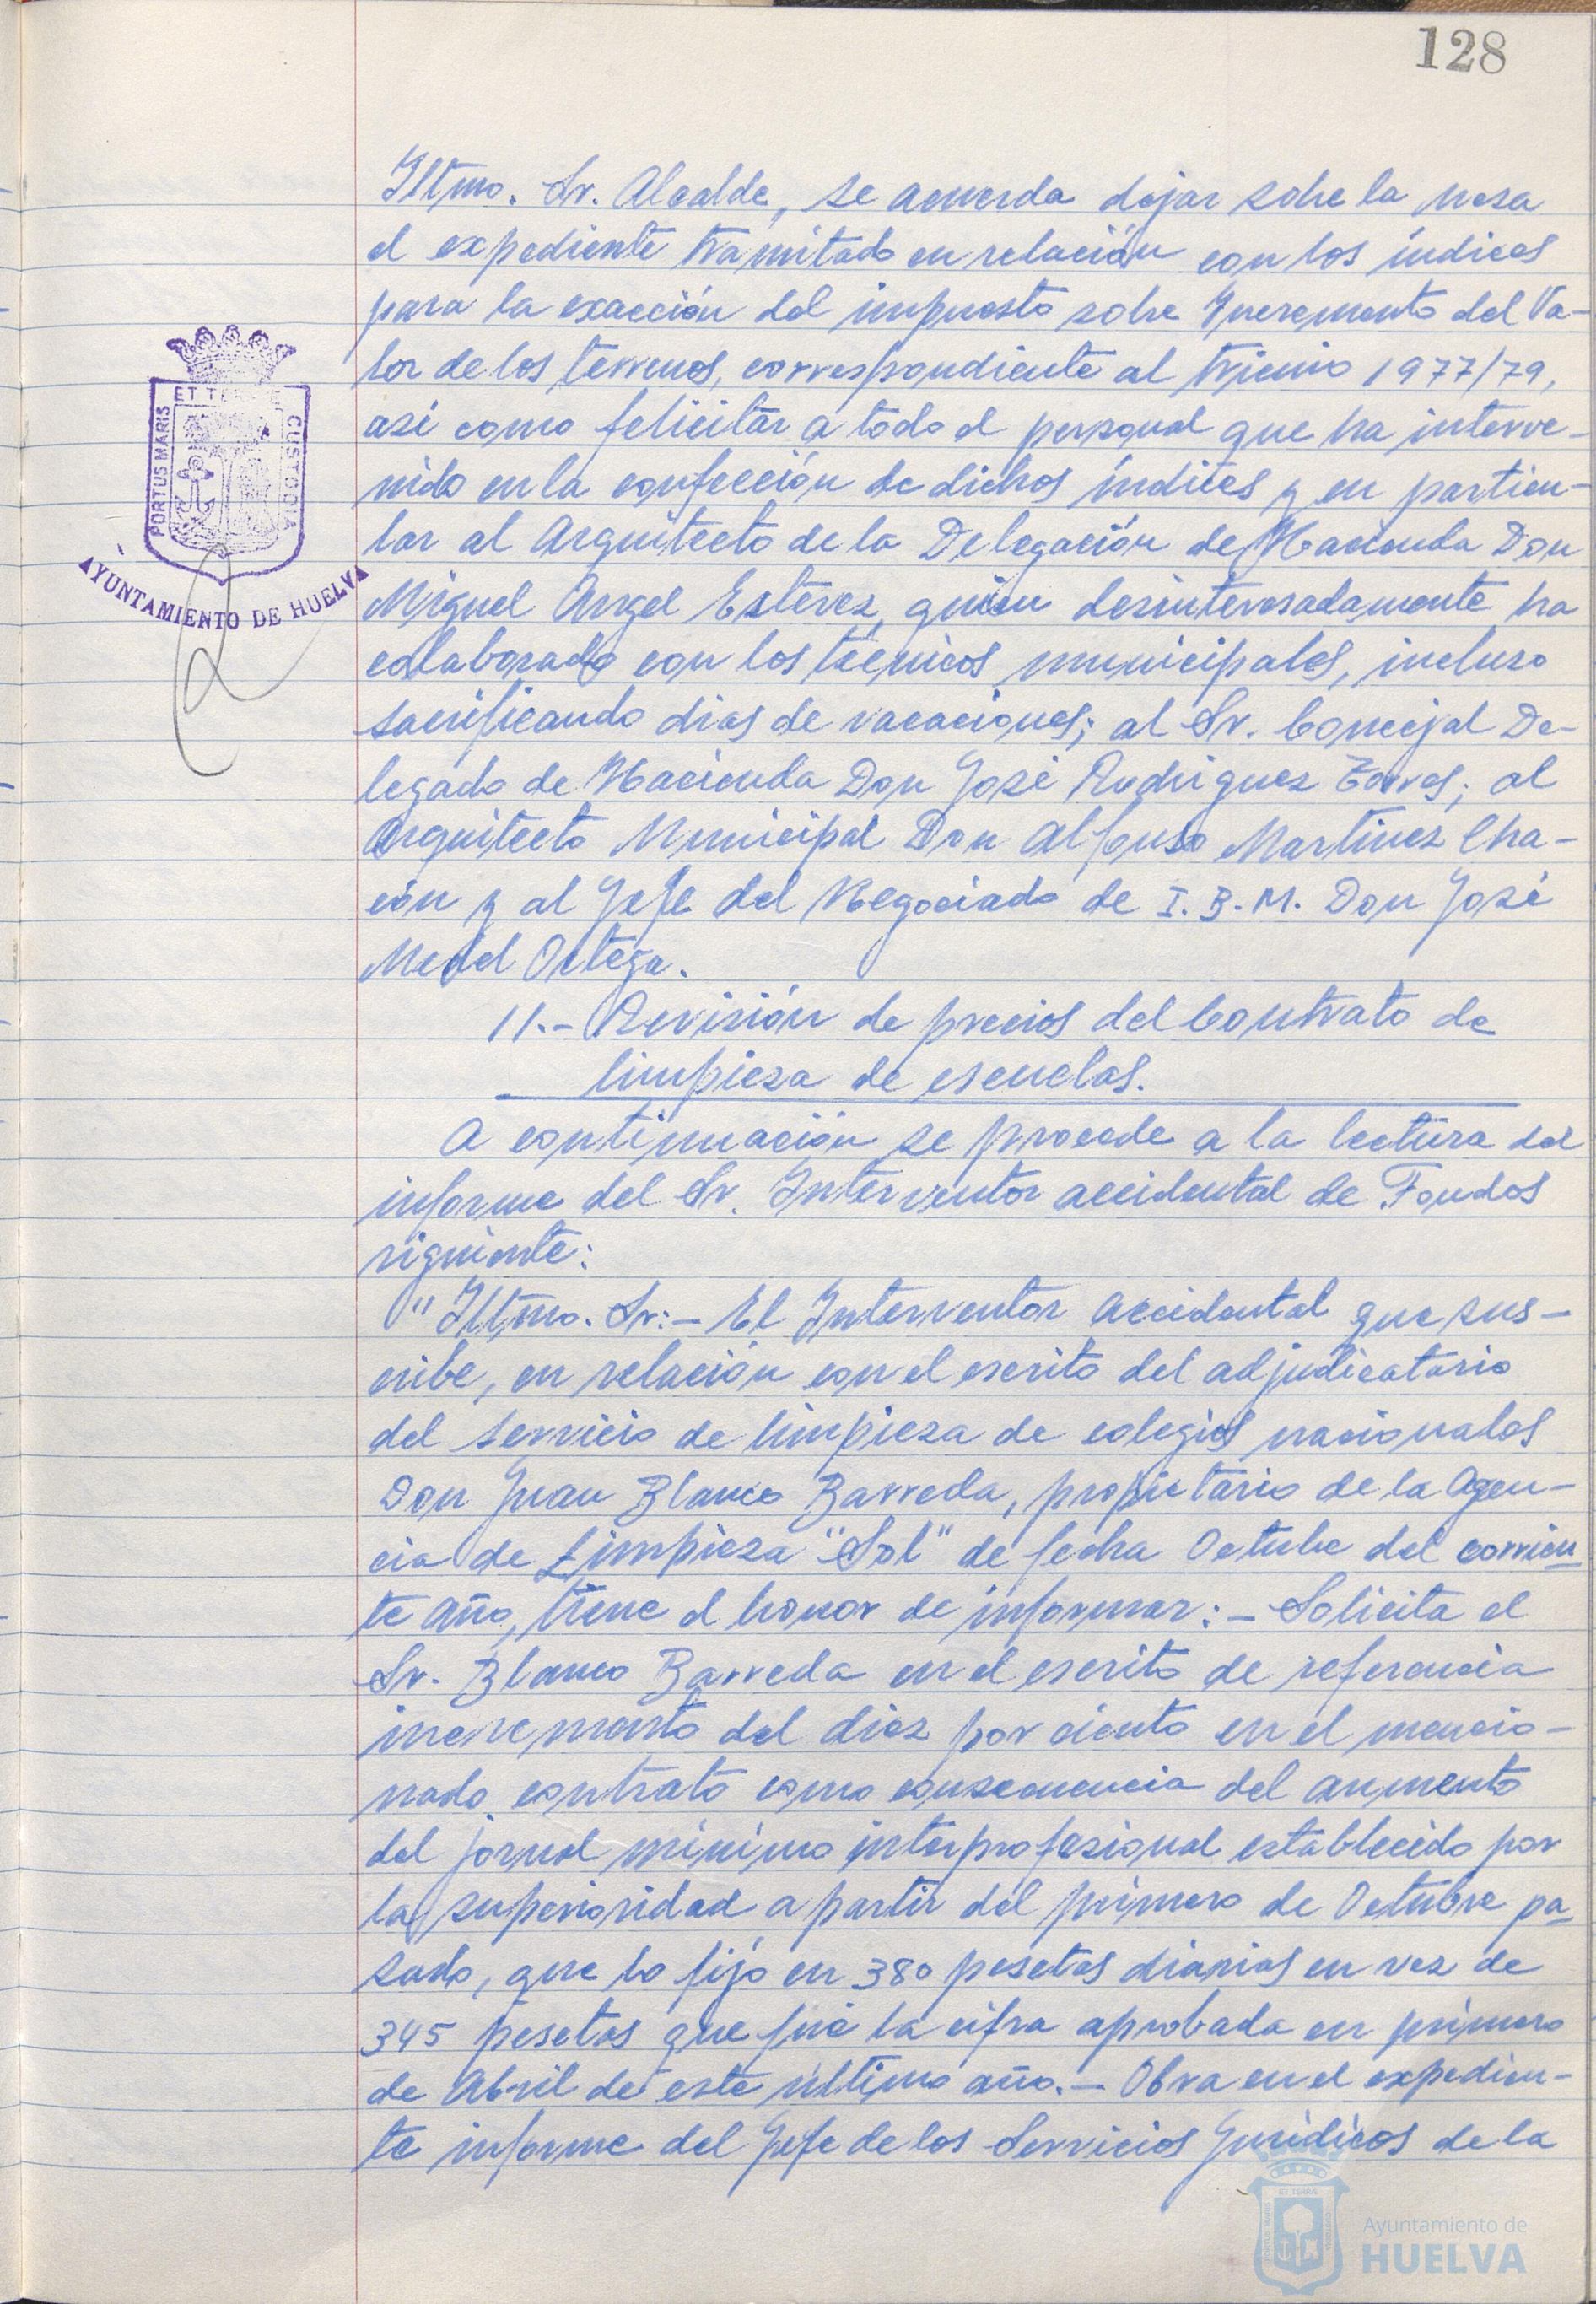 128
Iltmo. Sr. Alcalde, se acuerda dejar sobre la mesa
el expediente tramitado en relación con los índices
para la exacción del impuesto sobre Incremento del Va-
lor de los terrenos, correspondiente al trienio 1977/79,
asi como felicitar a todo el personal que ha interve-
nido en la confección de dichos índices y en particu-
lar al Arquitecto de la Delegación de Hacienda Don
Miguel Angel Estévez, quien desinteresadamente ha
colaborado con los técnicos municipales, incluso
sacrificando dias de vacaciones; al Sr. Concejal De-
legado de Hacienda Don José Rodriguez Torres; al
Arquitecto Municipal Don Alfonso Martinez Cha-
cón y al Jefe del Negociado de I.B.M. Don José
Medel Ortega.
11.- Revisión de precios del Contrato de
limpieza de escuelas.
A continuación se procede a la lectura del
informe del Sr. Interventor accidental de Fondos
siguiente:
"Iltmo. Sr:- El Interventor Accidental que sus-
cribe, en relación con el escrito del adjudicatario
del servicio de limpieza de colegios nacionales
Don Juan Blanco Barreda, propietario de la Agen-
cia de Limpieza "Sol" de fecha Octubre del corrien-
te año, tiene el honor de informar:- Solicita el
Sr. Blanco Barreda en el escrito de referencia
incremento del diez por ciento en el mencio-
nado contrato como consecuencia del aumento
del jornal mínimo interprofesional establecido por
la superioridad a partir del primero de Octubre pa-
sado, que lo fijó en 380 pesetas diarias en vez de
345 pesetas que fué la cifra aprobada en primero
de Abril de este último año.- Obra en el expedien-
te informe del Jefe de los Servicios Jurídicos de la
PORTUS MARIS ET TERRE CUSTODIA
AYUNTAMIENTO DE HUELVA
Ayuntamiento de
HUELVA